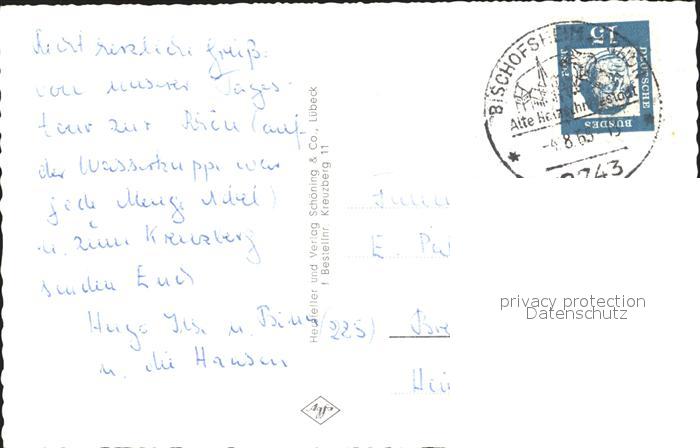 Recht herzliche Grüße
von unserer Tages-
tour zur Rhön (auf
der Wasserkuppe war
jede Menge Nebel)
u. zum Kreuzberg
senden Euch
Hugo, u.
u. die Hansen
Hersteller und Verlag Schöning & Co., Lübeck
Bestellnr. Kreuzberg 11
BISCHOFSHEIM
-4.8.63
8743
15
DEUTSCHE
BUNDES
E.
privacy protection
Datenschutz